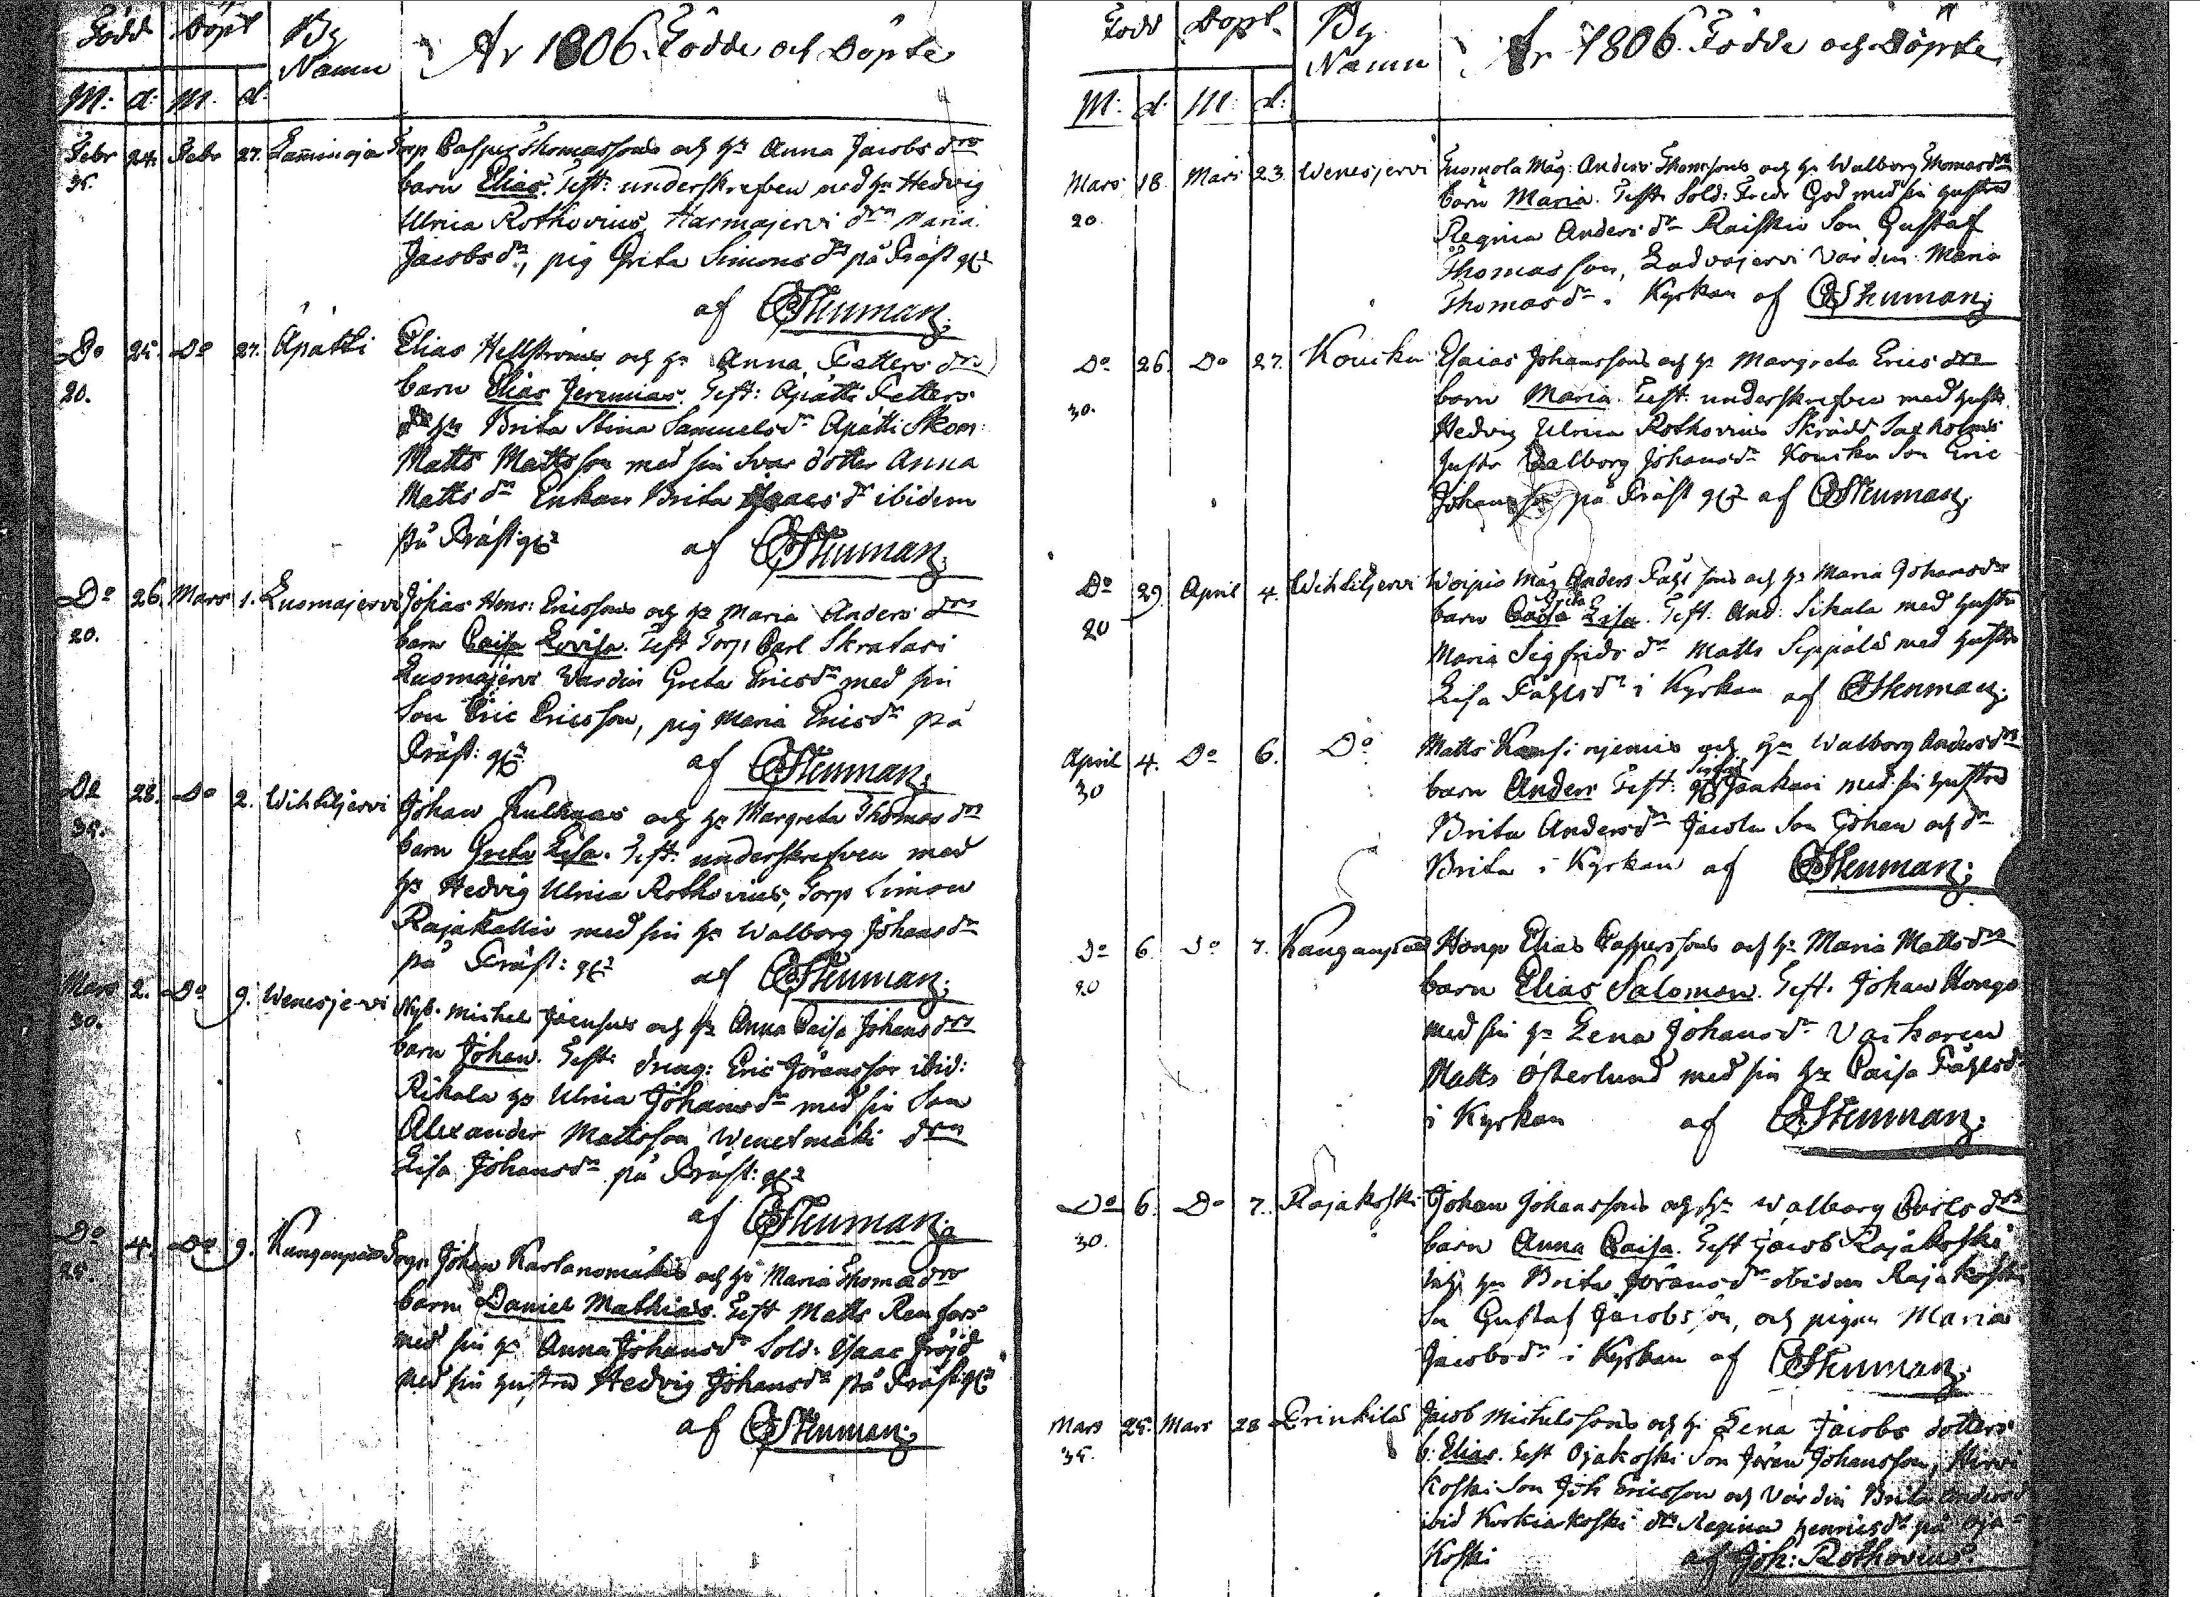 Född Döpt By Namn
År 1806. Födde och Döpte
M: d: M. d:
Febr 24. Febr 27. Lamminoja Torp Casper Thomassons och h:u Anna Jacobs drs
35. barn Elias. Test: underskrefven med h:u Hedvig
Ulrica Rothovius, Harmajervi dn Maria
Jacobs dr, pig Brita Simons dr på Präst g:n
af CStenman;
Do 25. Do 27. Apatti Elias Hellströms och h:u Anna Petters drs
20. barn Elias Jeremias. Test: Apatti Petters
h:u Brita Stina Samuels dr Apatti Skom:
Matts Mattsson med sin Svär dotter Anna
Matts dr Enkan Brita Isaacs dr ibidem
på Präst:g:n af CStenman;
Do 26. Mars 1. Lusmajervi Josias Henr: Ericssons och h:u Maria Anders drs
20. barn Caisa Lovisa. Test Torp Carl Skratari
Lusmajervi Värdin Greta Erics dr med sin
Son Eric Ericsson, pig Maria Erics dr på
Präst: g:n af CStenman;
Do 28. Do 2. Wihtiljervi Johan Kulknas och h:u Margreta Thomas drs
35. barn Greta Lisa. Test: underskrefven med
h:u Hedvig Ulrica Rothovius, Torp Simon
Rajakallio med sin h:u Walborg Johans dr
på Präst: g:n af CStenman;
Mars 2. Do 9. Wenesjervi Nyb. Michel Joensus och h:u Anna Caisa Johans drs
30. barn Johan. Test: dreng: Eric Jöransson ibid:
Rikala h:u Ulrica Johans dr med sin Son
Alexander Mattsson Wenetmäki drn
Lisa Johans dr på Präst: g:n
af CStenman;
Do 4. Do 9. Kanganpää Torp: Johan Karlanomäkis och h:u Maria Thomas drs
25. barn Daniel Mathias. Test Matts Renfors
med sin h:u Anna Johans dr Sold: Isaac Fröjd
med sin hustru Hedvig Johans dr på Präst:g:n
af CStenman;
Född Döpt. By Namn
År 1806. Födde och Döpte.
M: d: M: d:
Mars 18. Mars 23. Wenesjervi Tuomola Måg: Anders Thomssons och h:u Walborg Thomas drs
20. barn Maria. Test: Sold: Fredr God med sin hustru
Regina Anders dr Raiskio Son Gustaf
Thomasson, Ladvajervi Värdin Maria
Thomas dr i Kyrkan af CStenman;
Do 26. Do 27. Koucku Esaias Johanssons och h:u Margreta Erics drs
30. barn Maria. Test: underskrefven med hustr.
Hedvig Ulrica Rothovius Skrädd Saxholms
hustr Walborg Johans dr Koucku Son Eric
Johansson på Präst g:n af CStenman;
Do 29. April 4. Wihtiljervi Woipio Måg Anders Påhlsons och h:u Maria Johans drs
20 barn Caisa Greta Lisa. Test: And: Sikala med hustru
Maria Sigfrids dr Matts Seppälä med hustru
Lisa Påhls dr i Kyrkan af CStenman;
April 4. Do 6. Do Matts och h:u Walborg Anders drs
30 barn Anders Test: med sin hustru
Brita Anders dr Jacola Son Johan och dr
Brita i Kyrkan af CStenman;
Do 6. Do 7. Kanganpää Hongo Elias Casperssons och h:u Maria Matts drs
20 barn Elias Salomon. Test. Johan Hongo
med sin h:u Lena Johans dr Vaikoren
Matts Österlund med sin h:u Caisa Påhls dr
i Kyrkan af CStenman;
Do 6. Do 7. Rajakoski Johan Johanssons och h:u Walborg Carls drs
30. barn Anna Caisa. Test Jacob Rajakoski
h:u Brita Jörans dr ibidem Rajakoski
Son Gustaf Jacobsson, och pigan Maria
Jacobs dr i Kyrkan af CStenman;
Mars 25. Mars 28 Prinkilä Jacob Michelssons och h: Lena Jacobs dotters
35. b. Elias. Test Ojakoski Son Jöran Johansson, Hirvi
Koski Son Joh Ericsson och Värdin Brita Anders d
ibid Korkiakoski dtr Regina Henrics dr på Oja
Koski af Joh: Rothovius